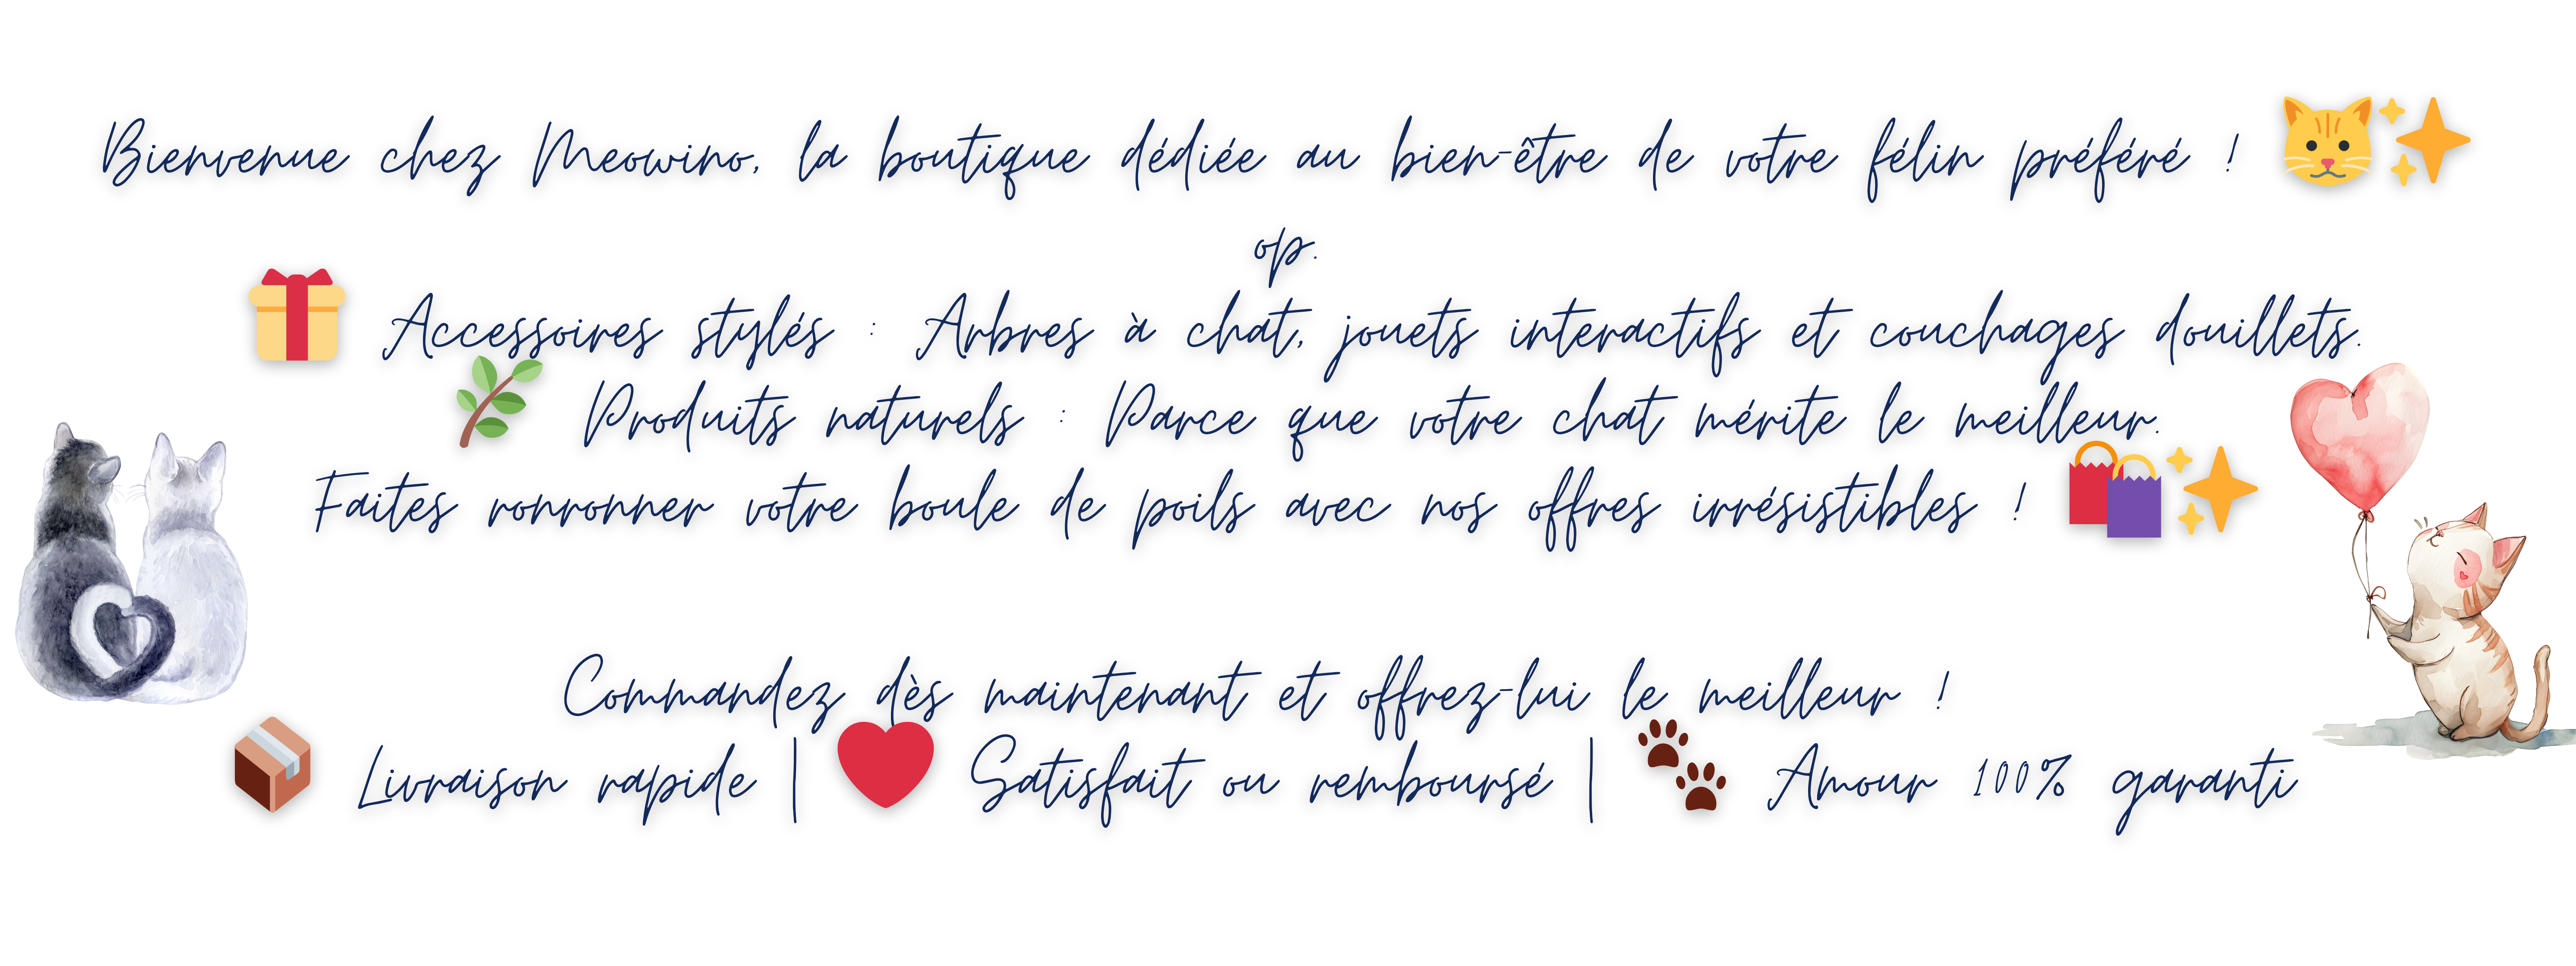 Bienvenue chez Meowino, la boutique dédiée au bien-être de votre félin préféré ! 🐱✨
op.
🎁 Accessoires stylés : Arbres à chat, jouets interactifs et couchages douillets.
🌿 Produits naturels : Parce que votre chat mérite le meilleur.
Faites ronronner votre boule de poils avec nos offres irrésistibles ! 🛍️✨
Commandez dès maintenant et offrez-lui le meilleur !
📦 Livraison rapide | ❤️ Satisfait ou remboursé | 🐾 Amour 100% garanti